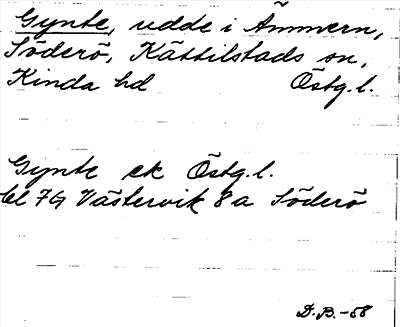 Gynte, udde i Ämmern,
Söderö, Kättilstads sn,
Kinda hd Östg.l.
Gynte ek Östg.l.
bl 7G Västervik 8a Söderö
D.B.-58